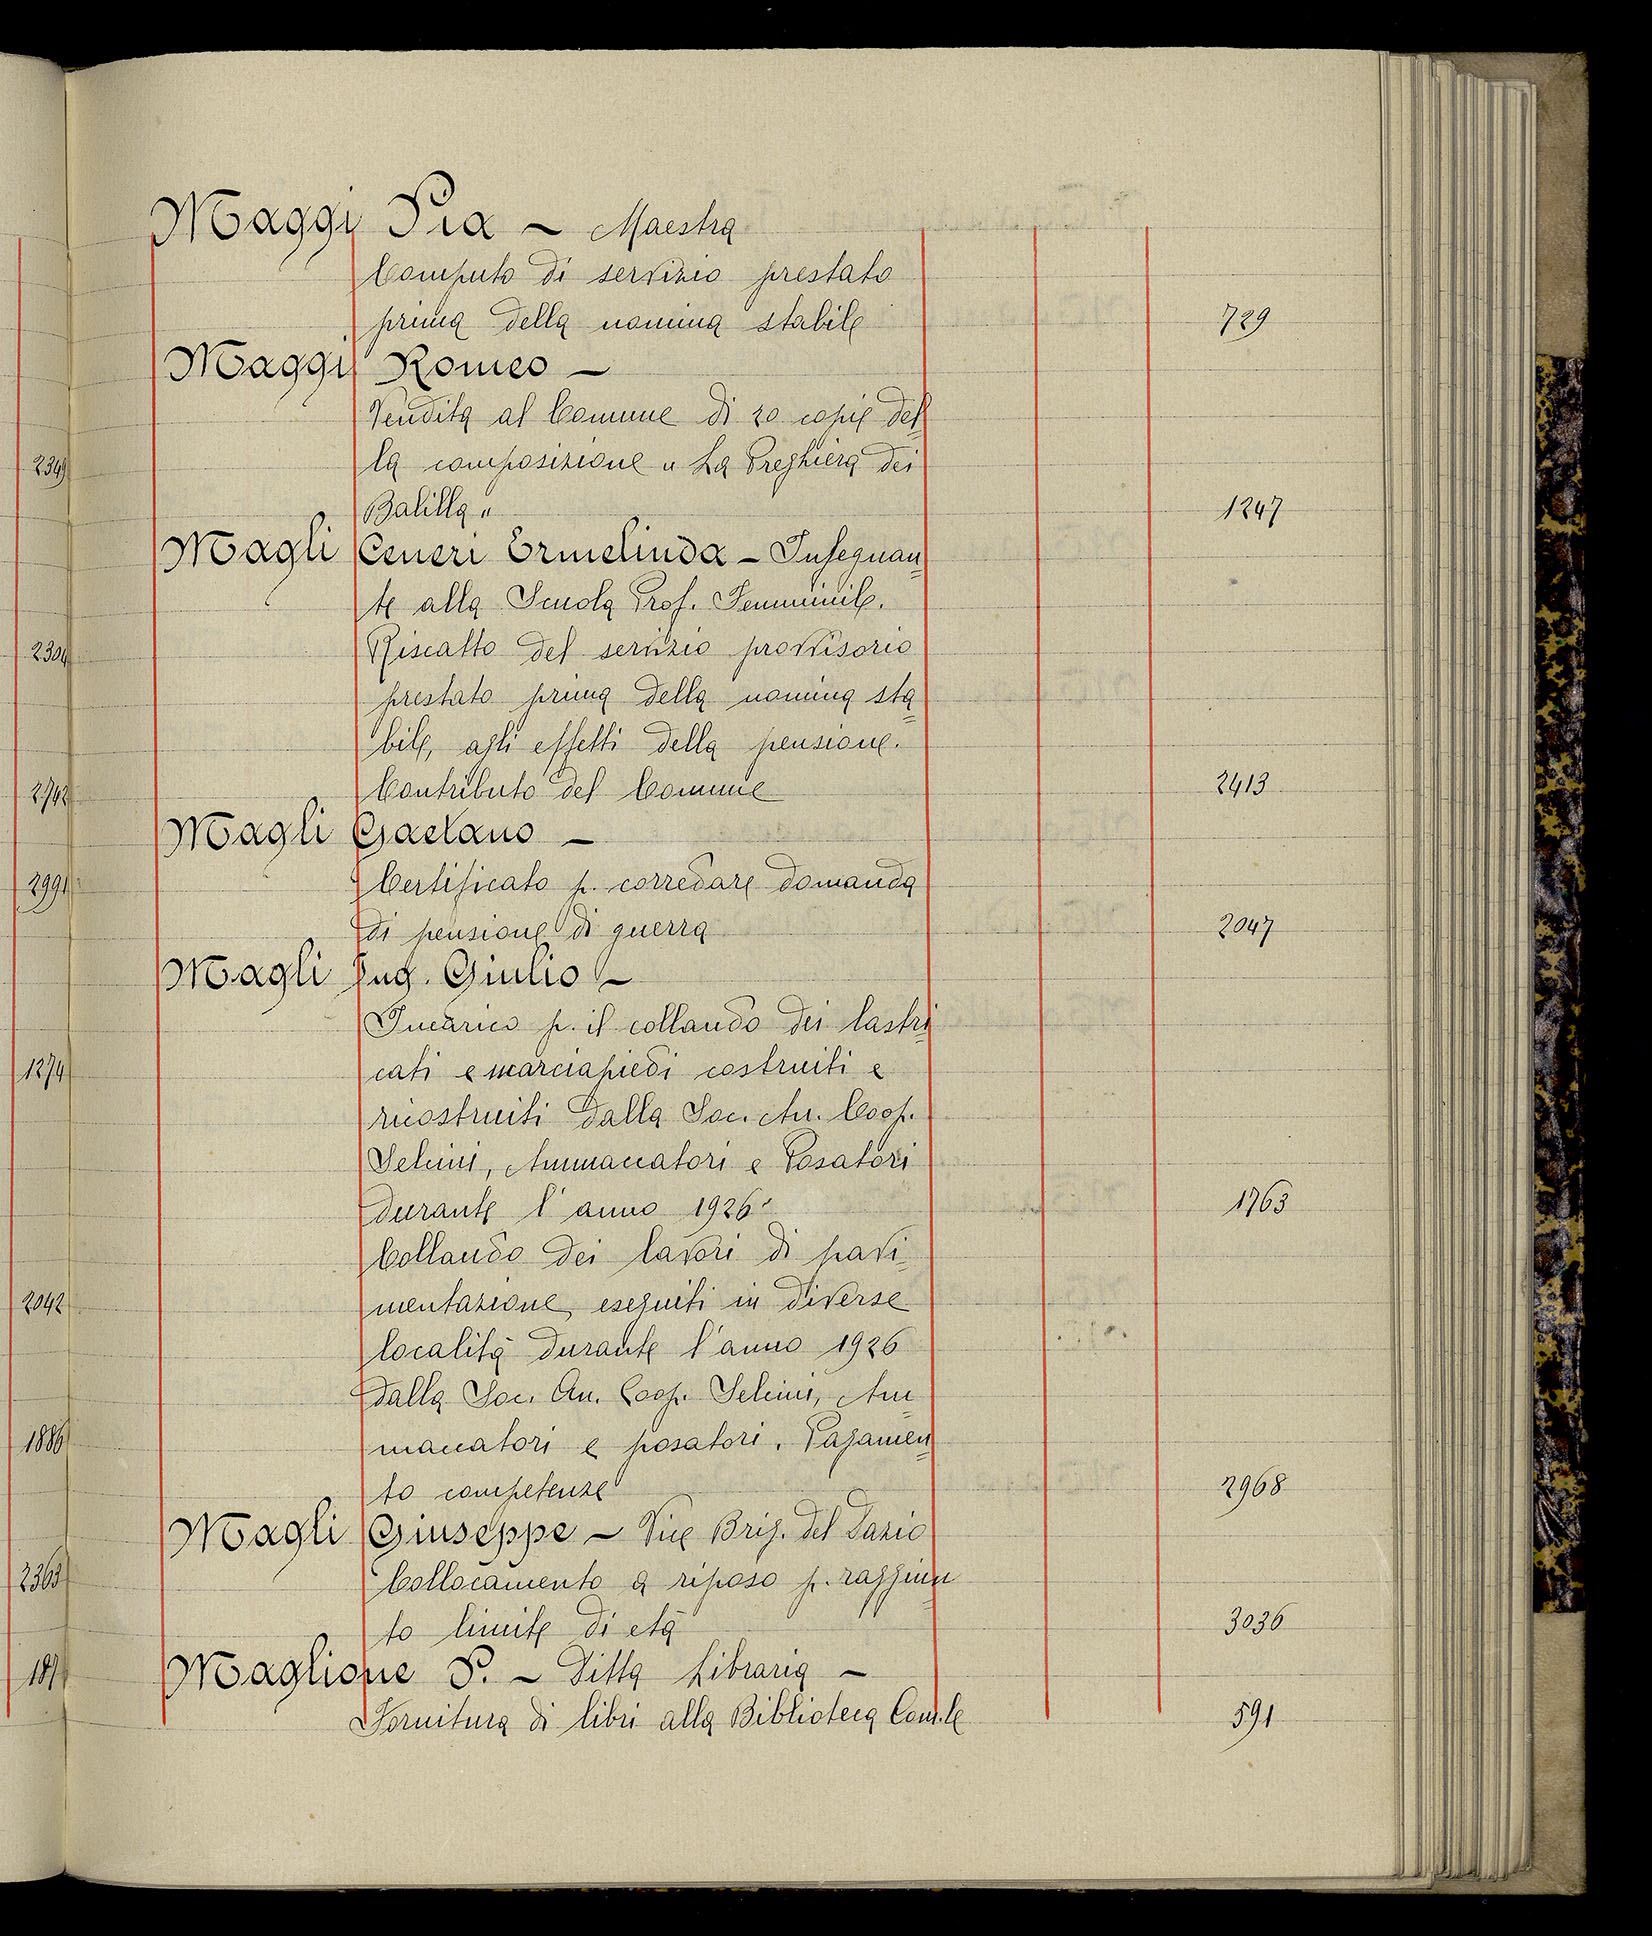 Maggi Pia – Maestra
Computo di servizio prestato
prima della nomina stabile 729
Maggi Romeo –
Vendita al Comune di 20 copie del=
2349
la composizione " La Preghiera dei
Balilla " 1247
Magli Ceneri Ermelinda – Insegnan=
te alla Scuola Prof. Femminile.
2304
Riscatto del servizio provvisorio
prestato prima della nomina sta=
bile, agli effetti della pensione.
2742
Contributo del Comune 2413
Magli Gaetano –
2991
Certificato p. corredare domanda
di pensione di guerra 2047
Magli Ing. Giulio –
Incarico p. il collaudo dei lastri=
1274
cati e marciapiedi costruiti e
ricostruiti dalla Soc. An. Coop.
Selcini, Ammaccatori e Posatori
durante l'anno 1926. 1763
Collaudo dei lavori di pavi=
2042
mentazione eseguiti in diverse
località durante l'anno 1926
dalla Soc. An. Coop. Selcini, Am=
1886
maccatori e posatori. Pagamen=
to competenze 2968
Magli Giuseppe – Vice Brig. del Dazio
2363
Collocamento a riposo p. raggiun=
to limite di età 3036
187
Maglione P. – Ditta Libraria –
Fornitura di libri alla Biblioteca Com.le 591